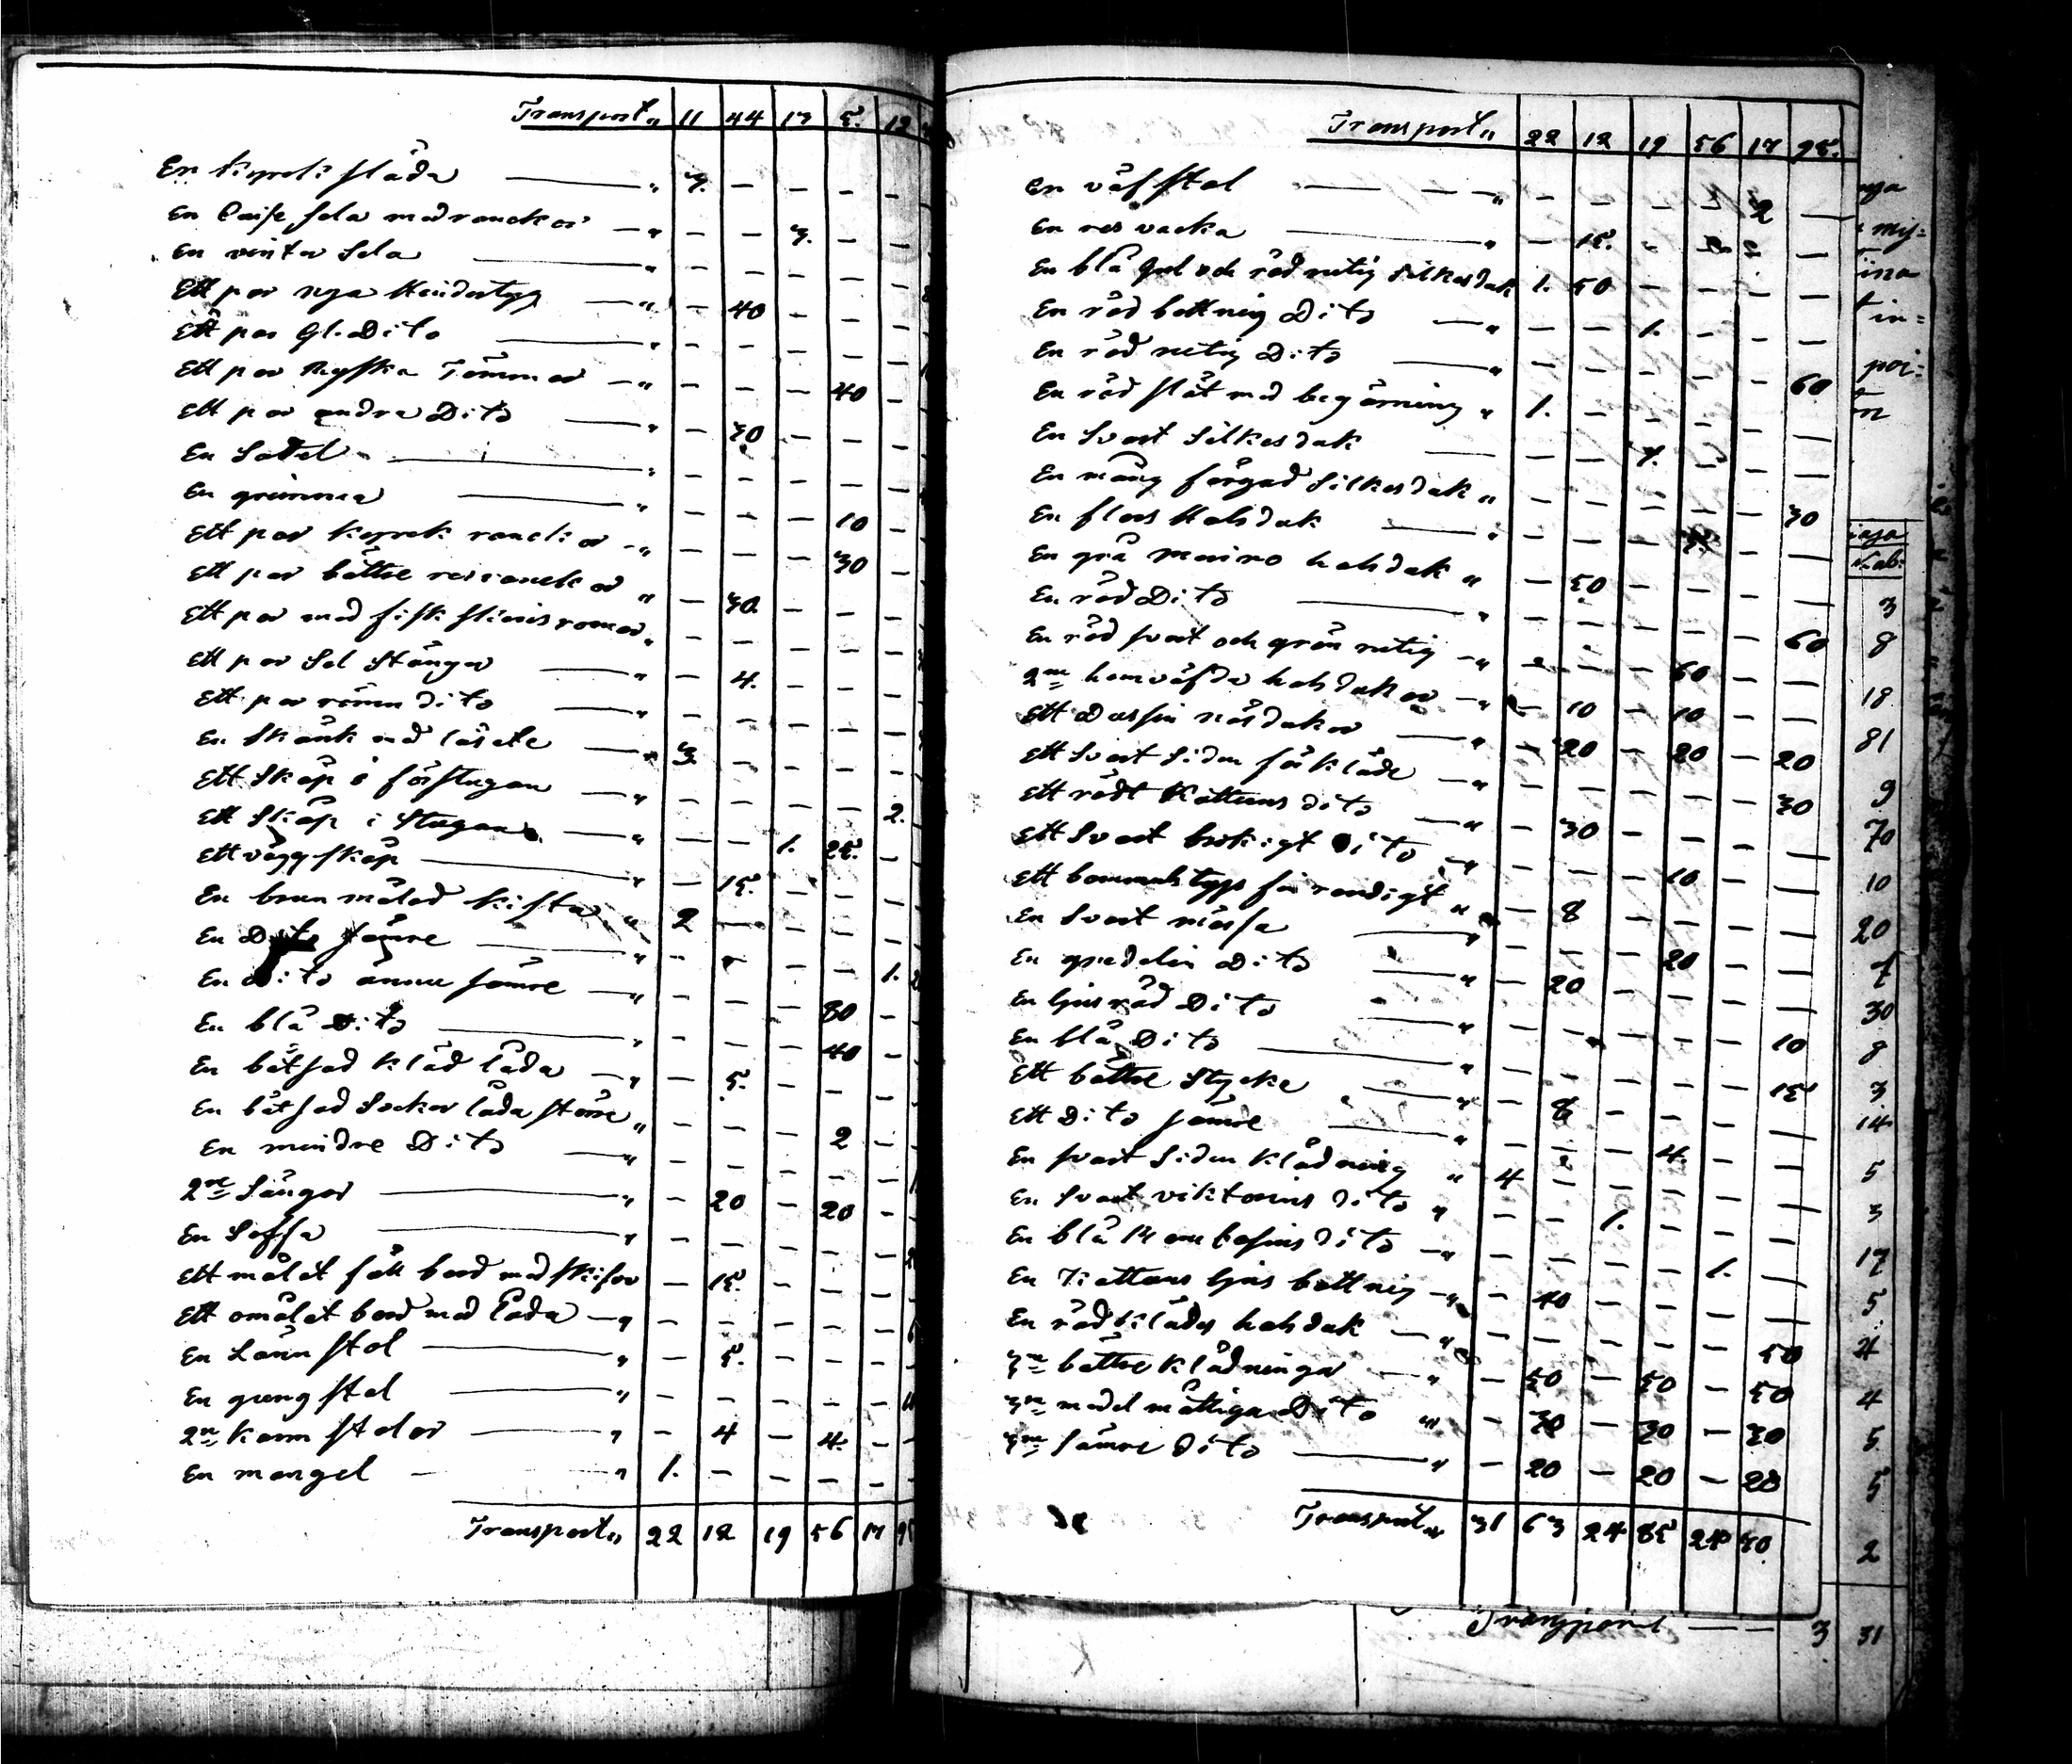 Transport „ 11 44 13 5. 12
En kyrk släda — „ 3. — — — —
En Caise sela med ranckor — „ — — 3. — —
En vinter Sela — „ — — — — —
Ett par nya Hindertyg — „ — 40 — — —
Ett par Gl. Dito — „ — — — — —
Ett par Ryska Tömmar — „ — — — 40 —
Ett par andra Dito — „ — 30 — — —
En Sadel — „ — — — — —
En grimma — „ — — — 10 —
Ett par kyrk ranckor — „ — — — 30 —
Ett par bättre ranckor „ — 30 — — —
Ett par med fisk skins „ — — — — —
Ett par Sel Stänger — „ — 4. — — —
Ett par dito — „ — — — — —
En Skänk med — „ 3. — — — —
Ett Skåp i förstugan — „ — — — — 2.
Ett Skåp i Stugan — „ — — 1. 25. —
Ett vägg skåp — „ — 15. — — —
En brun målad kista „ 2 — — — —
En Dito sämre — „ — — — — 1.
En dito ännu sämre — „ — — — 80 —
En blå Dito — „ — — — 40 —
En betsad Kläd låda — „ — 5. — — —
En betsad Socker låda större „ — — — 2 —
En mindre Dito — „ — — — — —
2ne Sängar — „ — 20 — 20 —
En Soffa — „ — — — — —
Ett målat fäll bord med skifvor — 15. — — —
Ett omålat bord med låda — „ — — — — —
En Länn stol — „ — 5. — — —
En gung stol — „ — — — — —
2ne karm stolar — „ — 4 — 4. —
En mangel — „ 1. — — — —
Transport „ 22 12 19 56 17 95
Transport „ 22 12 19 56 17 95.
En väfstol — „ — — — — 2 —
En res väska — „ — 15. — —
En blå Gul och röd rutig Silkesduk 1. 50 — — — —
En röd bottnig Dito — „ — — 1. — — —
En röd rutig Dito — „ — — — — — 60
En röd slät med begärning „ 1. — — — — —
En Svart Silkesduk — — — 1. — — —
En mång färgad Silkesduk „ — — — — — 30
En flors Halsduk — „ — — — — —
En grå merino halsduk „ — 50 — — — —
En röd Dito — „ — — — — — 60
En röd svart och grön rutig — „ — — — 60 — —
2ne hemväfda halsdukar — „ — 10 — 10 — —
Ett Dussin näsdukar — „ — 20 — 20 — 20
Ett Svart Siden förkläde — „ — — — — — 30
Ett rödt Kattuns dito — „ — 30 — — — —
Ett Svart brokigt Dito — „ — — — 10 — —
Ett bommulstygs för randigt „ — 8 — — — —
En Svart mössa — „ — — — 20 — —
En gredelin Dito — „ — 20 — — — —
En ljusröd Dito — „ — — — — — 10
En blå Dito — „ — — — — — 15
Ett bättre Stycke — „ — 8 — — — —
Ett Dito sämre — „ — — — 4. — —
En svart Siden Klädning „ 4 — — — — —
En Svart viktorins dito „ — — 1. — — —
En blå dito — „ — — — — 1. —
En Kattuns ljus bottnig — „ — 40 — — — —
En röd klädes halsduk — „ — — — — — 50
3ne bättre klädningar — „ — 50 — 50 — 50
3ne medel måttiga Dito „ — 30 — 30 — 30
3ne sämre dito — „ — 20 — 20 — 20
Transport „ 31 63 24 85 24 30
Transport — — 3 31
nya
ina
in=
poi=
3
8
18
81
9
70
10
20
7
30
8
3
14
5
3
17
5
4
4
5
5
2